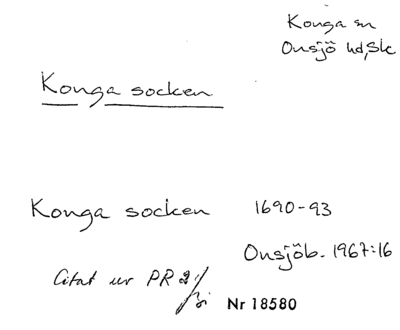 Konga sn
Onsjö hd, Sk
Konga socken
Konga socken 1690-93
Onsjöb. 1967:16
Citat ur PR 2
Nr 18580